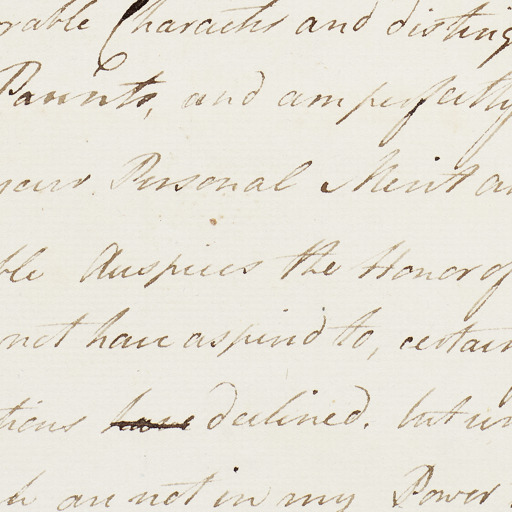 rable Characters and disting
Parents, and am perfectly
your Personal Merit an
ble Auspices the Honor of
not have aspired to, certain
tions have declined. but un
are not in my Power